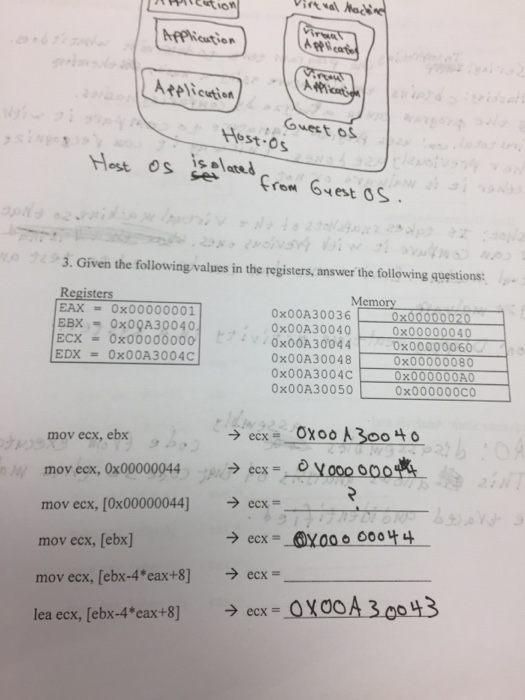 Application
Virtual Machine
Application
Virtual
Application
Application
Virtual
Application
Guest OS
Host OS
Host OS isolated from Guest OS.
3. Given the following values in the registers, answer the following questions:
Registers
EAX = 0x00000001
EBX = 0x00A30040
ECX = 0x00000000
EDX = 0x00A3004C
Memory
0x00A30036 0x00000020
0x00A30040 0x00000040
0x00A30044 0x00000060
0x00A30048 0x00000080
0x00A3004C 0x000000A0
0x00A30050 0x000000C0
mov ecx, ebx → ecx = 0X00A30040
mov ecx, 0x00000044 → ecx = 0X00000044
mov ecx, [0x00000044] → ecx = ?
mov ecx, [ebx] → ecx = 0X00000044
mov ecx, [ebx-4*eax+8] → ecx =
lea ecx, [ebx-4*eax+8] → ecx = 0X00A30043